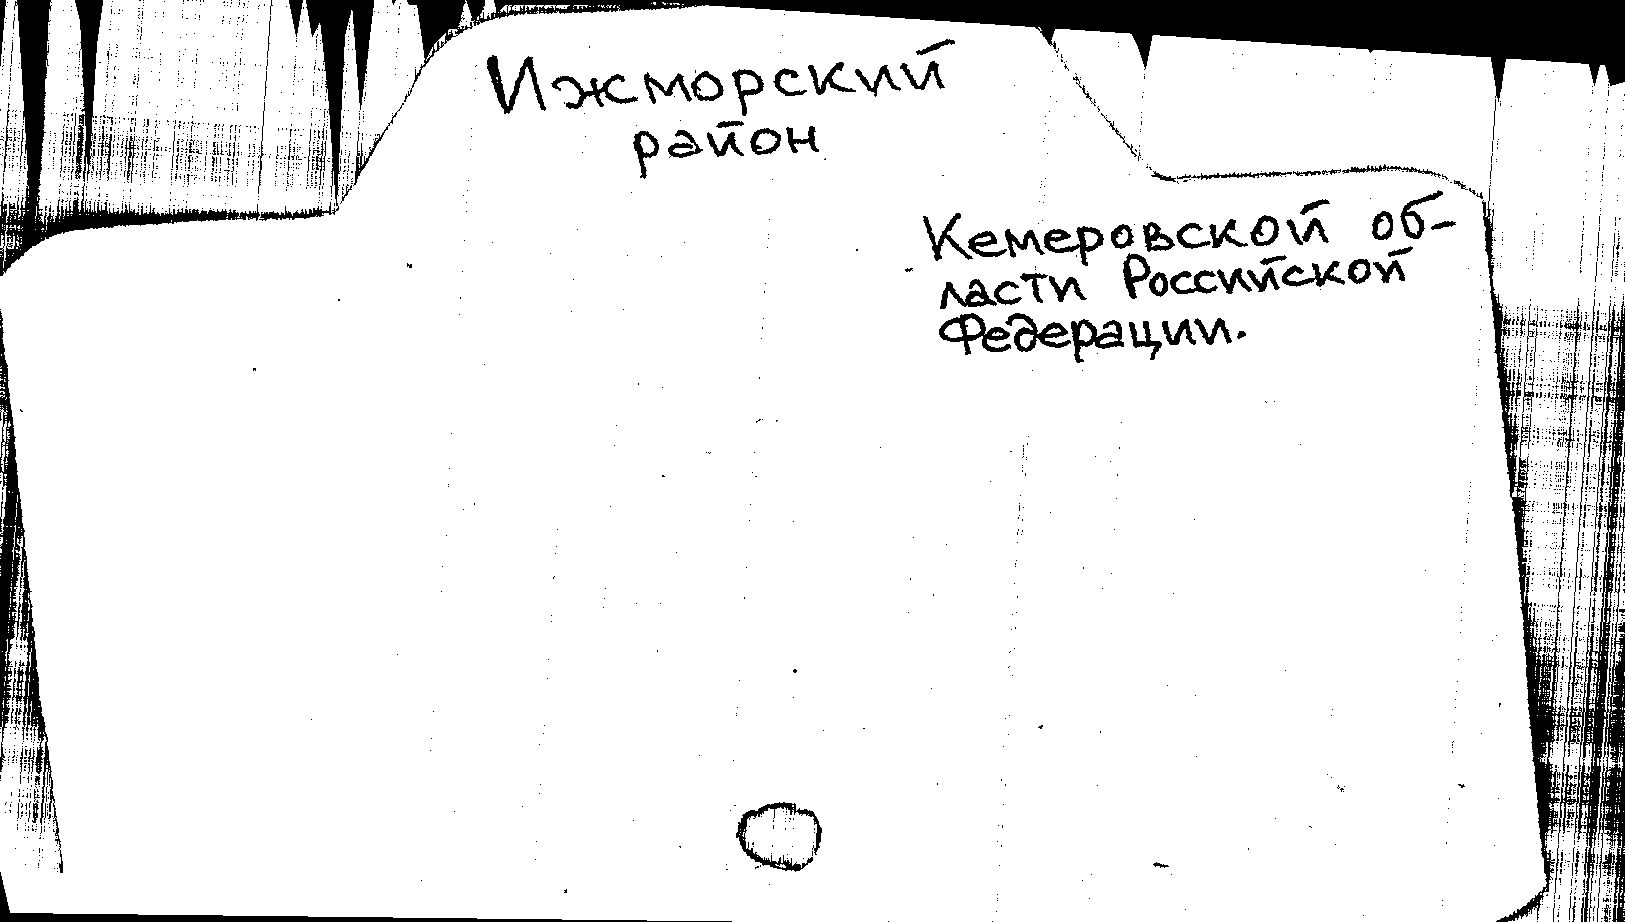 Ижморский
район
Кемеровской об-
ласти Российской
Федерации.